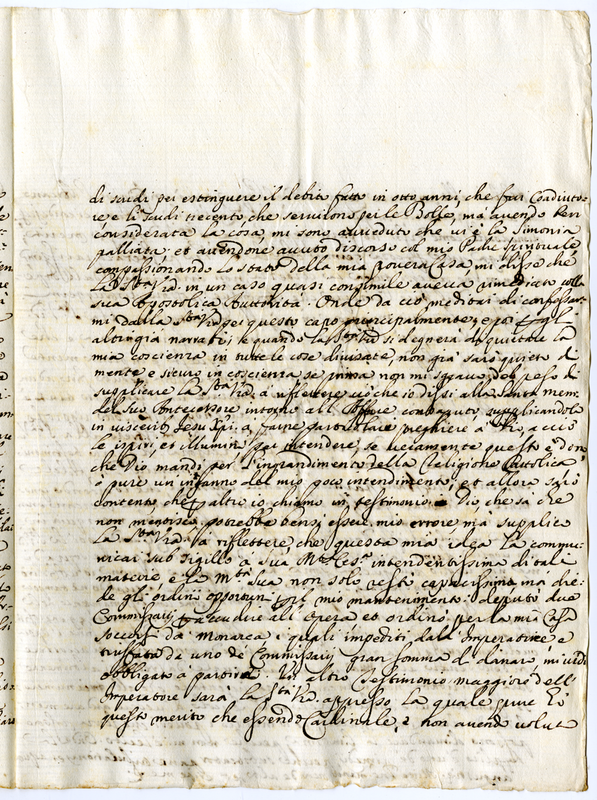 di scudi per estinguere il debito fatto in otto anni, che fui Coadiuto-
re e li scudi trecento che servirono per le Bolle, ma avendo ben
considerata la cosa, mi sono avveduto che vi è la Simonia
palliata, et avendone avuto discorso col mio Padre spirituale
compassionando lo stato della mia povera Casa, mi disse che
La Stà Vrã in un caso quasi consimile aveva rimediato colla
sua Apostolica Auttorità. Onde da ciò meditai di confessar-
mi dalla Stà Vrã per questo capo principalmente, e poi gl'
altri già narrati, e quando la Stà Vrã si degnerà di quietare la
mia coscienza in tutte le cose divisate, non già sarò quieto di
mente e sicuro in coscienza se prima non mi sgravo del peso di
supplicare la Stà Vrã, à riflettere ciò che io dissi alla Santa mem.
del suo Antecessore intorno all' supplicandolo
in visceribus Jesu Xpi. a farne particolare preghiere à Dio, acciò
le ispiri, et illumini per intendere, se veramente questo è dono
che Dio mandi per l'ingrandimento della Religione Cattolica
ò pure un inganno del mio poco intendimento, et allora sarò
contento, che altro io chiamo in testimonio Dio, che sa che
non mentisco, potrebbe bensì essere mio errore, mà supplico
La Stà Vrã à riflettere che questa mia idea La commu-
nicai sub sigillo à Sua Mtà Ces.ª intendentissima di tali
materie, e la Mtà Sua non solo restò capacissima ma die-
de gli ordini opportuni pel mio mantenimento: deputò due
Commissarij accudire all'Opera et ordinò per la mia Casa
soccorsi da Monarca, i quali impediti dall'Imperatrice e
truffata da uno de Commissarij gran somma di danaro, mi vidi
obbligato à partire. Un altro testimonio maggiore dell'
Imperatore sarà la Stà Vrã appresso, la quale pure hà
questo merito che essendo Cardinale, e non avendo voluto